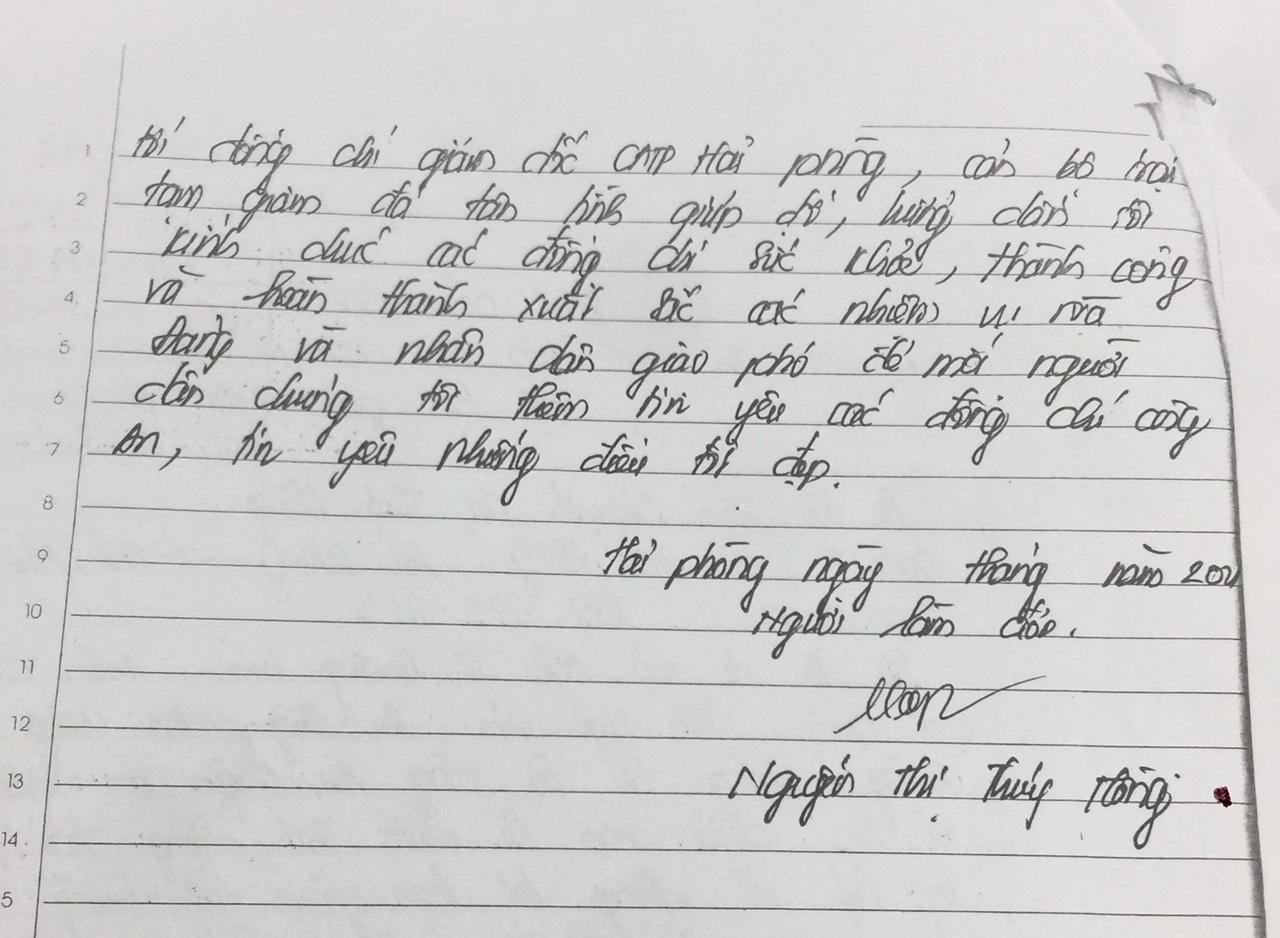 1 tới đồng chí giám đốc CATP Hải phòng, cán bộ trại
2 tạm giam đã tận tình giúp đỡ, hướng dẫn tôi
3 kính chúc các đồng chí sức khỏe, thành công
4 và hoàn thành xuất sắc các nhiệm vụ mà
5 Đảng và nhân dân giao phó để mỗi người
6 dân chúng tôi thêm tin yêu các đồng chí công
7 An, tin yêu những điều tốt đẹp.
8
9 Hải phòng ngày tháng năm
10 Người làm đơn.
11
12
13 Nguyễn Thị Thúy Hồng
14
5